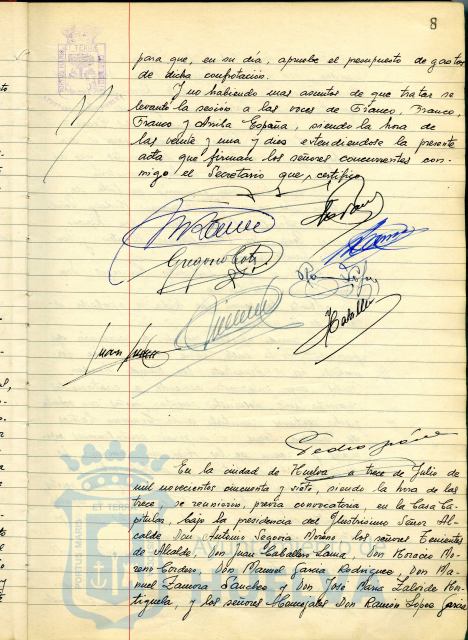 8
para que, en su día, apruebe el presupuesto de gastos
de dicha confrotación.
Y no habiendo mas asuntos de que tratar se
levanta la sesión a las voces de Franco, Franco,
Franco y Arriba España, siendo la hora de
las veinte y una y diez extendiendose la presente
acta que firman los señores concurrentes con-
migo el Secretario que certifico
Gregorio
Juan
Pedro
En la ciudad de Huelva a trece de Julio de
mil novecientos cincuenta y siete, siendo la hora de las
trece, se reunieron, previa convocatoria, en la Casa Ca-
pitular, bajo la presidencia del Ilustrisimo Señor Al-
calde Don Antonio Segovia Moreno los señores Tenientes
de Alcalde, Don Juan Caballero Lama, Don Horacio Mo-
reno Cordero, Don Manuel Garcia Rodriguez, Don Ma-
nuel Zamora Sanchez y Don José Maria
y los señores Don Ramón Lopez Garcia